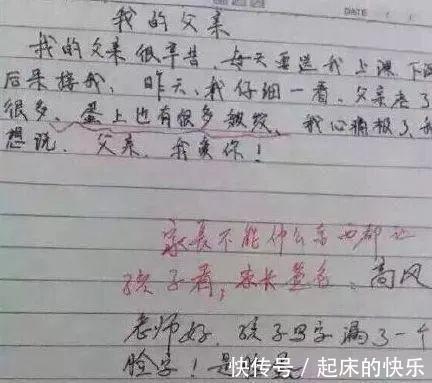 DATE
我的父亲
我的父亲很辛苦，每天要送我上课，下课
后来接我，昨天，我仔细一看，父亲老了
很多，蛋上也有很多皱纹，我心痛极了，我
想说，父亲，我爱你！
家长不能什么东西都让
孩子看，家长签名：高风
老师好，孩子写字漏了一个
脸字！是
快传号/起床的快乐